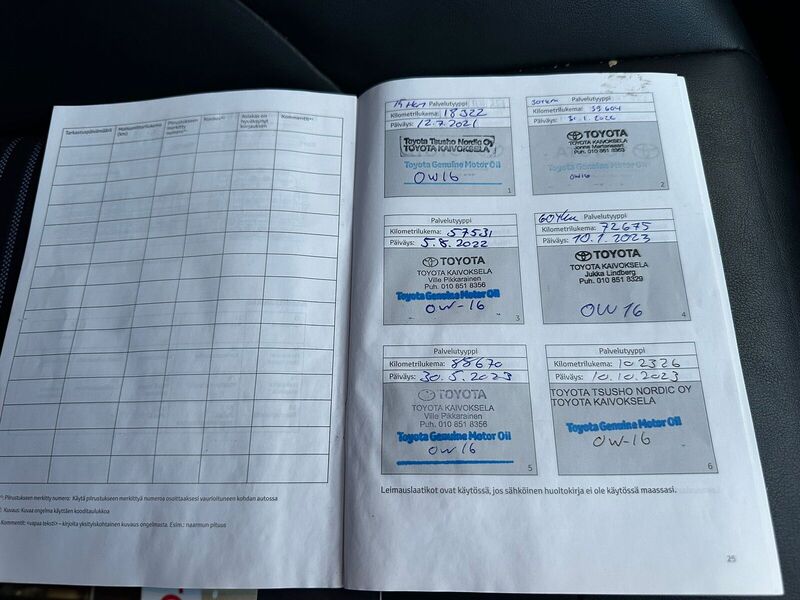 Tarkastuspäivämäärä
Matkamittarilukema (km)
Piirustukseen merkitty numero
Kuvaus
Asiakas on hyväksynyt korjauksen
Kommentit
Piirustukseen merkitty numero: Käytä piirustukseen merkittyä numeroa osoittaaksesi vaurioituneen kohdan autossa
Kuvaus: Kuvaa ongelma käyttäen kooditaulukkoa
Kommentit: <vapaa teksti> – kirjoita yksityiskohtainen kuvaus ongelmasta. Esim.: naarmun pituus
Palvelutyyppi
Kilometrilukema: 18322
Päiväys: 12.7.2021
Toyota Tsusho Nordic Oy
TOYOTA KAIVOKSELA
Toyota Genuine Motor Oil
OW16
1
Palvelutyyppi
Kilometrilukema: 39 604
Päiväys:
TOYOTA
TOYOTA KAIVOKSELA
Puh. 010 851 8363
Toyota Genuine Motor Oil
OW16
2
Palvelutyyppi
Kilometrilukema: 57531
Päiväys: 5.8.2022
TOYOTA
TOYOTA KAIVOKSELA
Ville Pikkarainen
Puh. 010 851 8356
Toyota Genuine Motor Oil
OW-16
3
60tkm Palvelutyyppi
Kilometrilukema: 72675
Päiväys: 10.1.2023
TOYOTA
TOYOTA KAIVOKSELA
Jukka Lindberg
Puh. 010 851 8329
OW16
4
Palvelutyyppi
Kilometrilukema: 88670
Päiväys: 30.5.2023
TOYOTA
TOYOTA KAIVOKSELA
Ville Pikkarainen
Puh. 010 851 8356
Toyota Genuine Motor Oil
OW16
5
Palvelutyyppi
Kilometrilukema: 102326
Päiväys: 10.10.2023
TOYOTA TSUSHO NORDIC OY
TOYOTA KAIVOKSELA
Toyota Genuine Motor Oil
OW-16
6
Leimauslaatikot ovat käytössä, jos sähköinen huoltokirja ei ole käytössä maassasi.
25